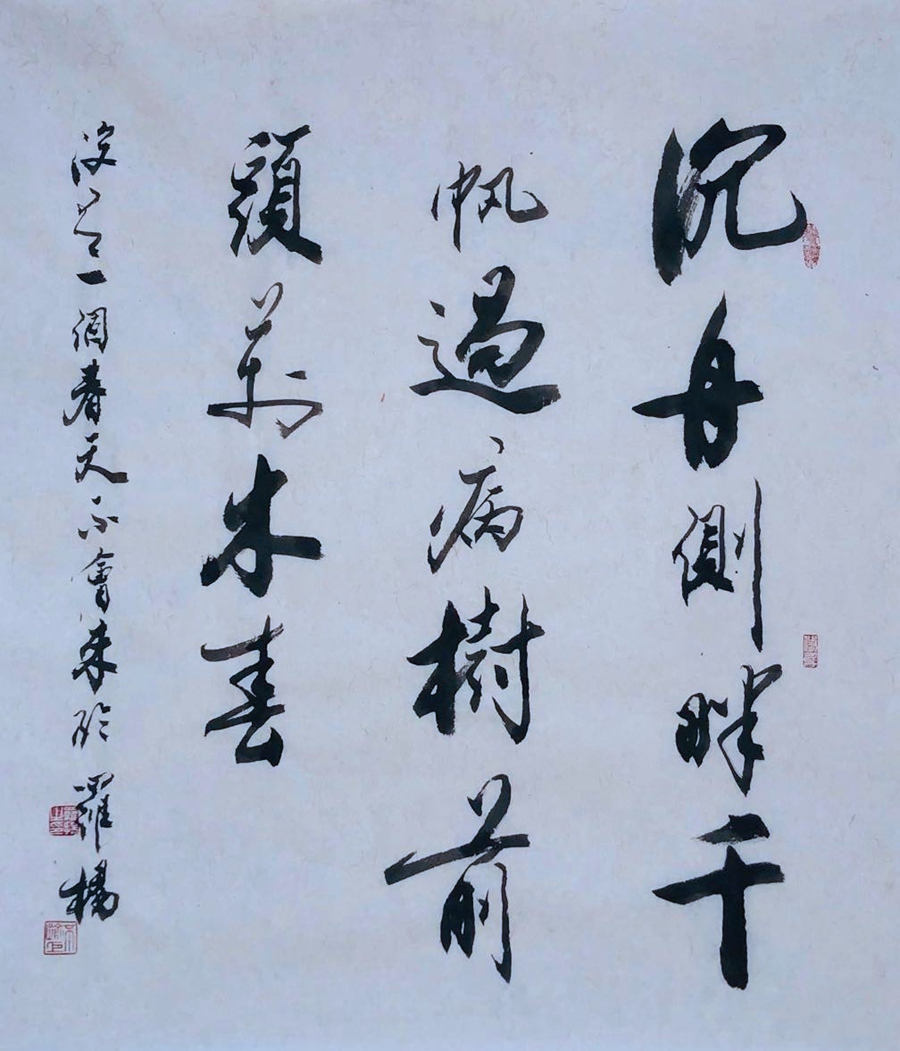 沉舟側畔千
帆過病樹前
頭萬木春
沒有一個春天不會來臨 羅楊